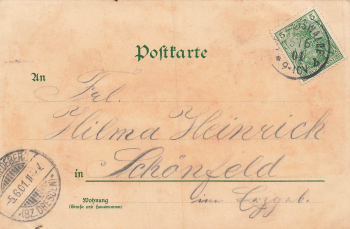 Postkarte
An
Frl.
Hilma Heinrich
in Schönfeld
Wohnung
(Straße und Hausnummer)
im Erzgeb.
5
5
-5.6.01